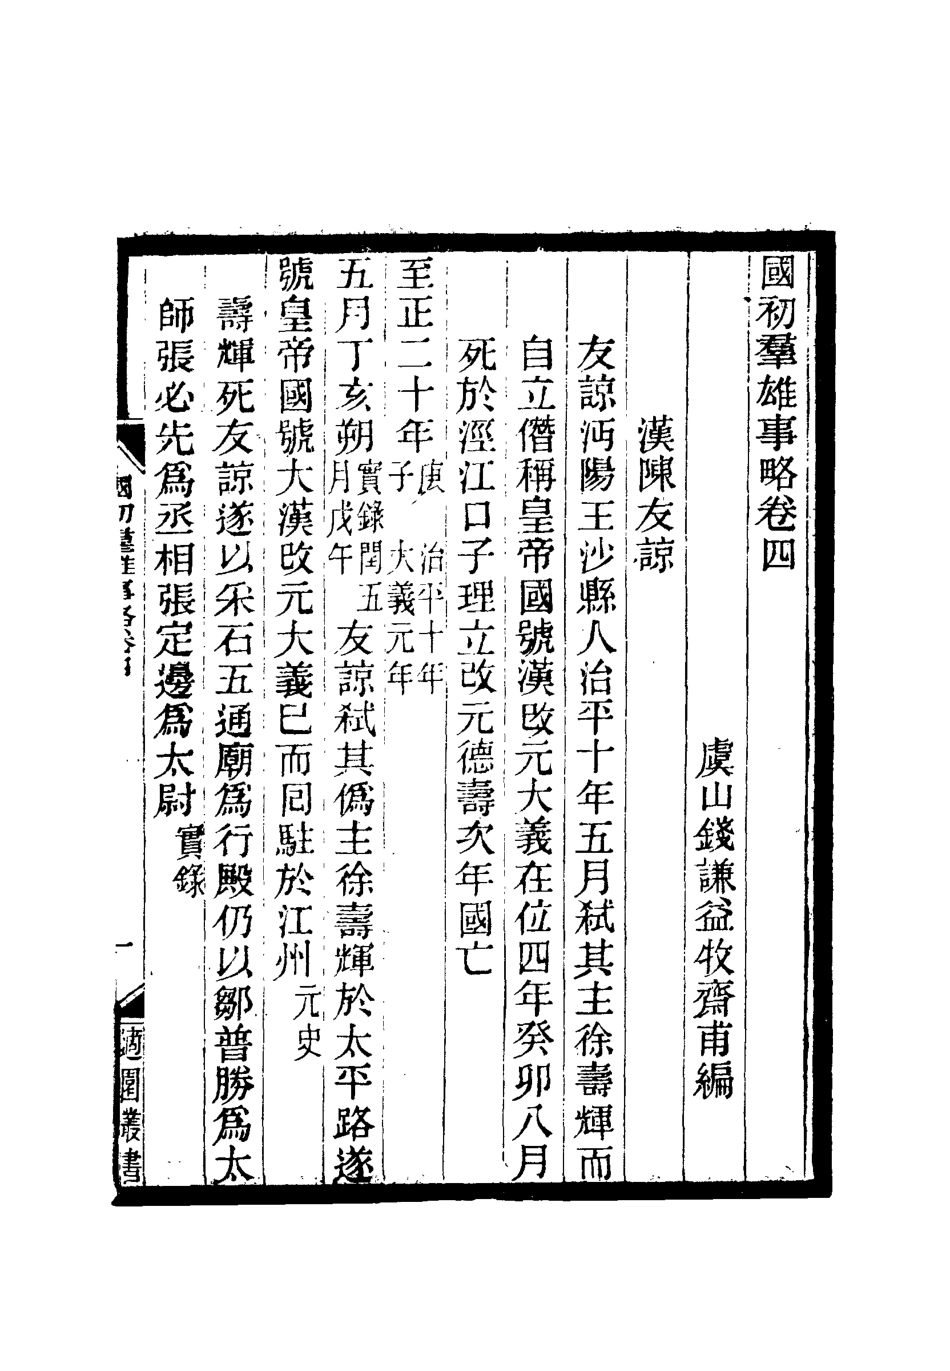 國初羣雄事略卷四
虞山錢謙益牧齋甫編
漢陳友諒
友諒沔陽玉沙縣人治平十年五月弒其主徐壽輝而
自立僭稱皇帝國號漢改元大義在位四年癸卯八月
死於涇江口子理立改元德壽次年國亡
至正二十年庚子 治平十年 大義元年
五月丁亥朔實錄閏五月戊午友諒弒其僞主徐壽輝於太平路遂
號皇帝國號大漢改元大義已而囘駐於江州元史
壽輝死友諒遂以采石五通廟爲行殿仍以鄒普勝爲太
師張必先爲丞相張定邊爲太尉實錄
國初羣雄事略卷四
一
適園叢書